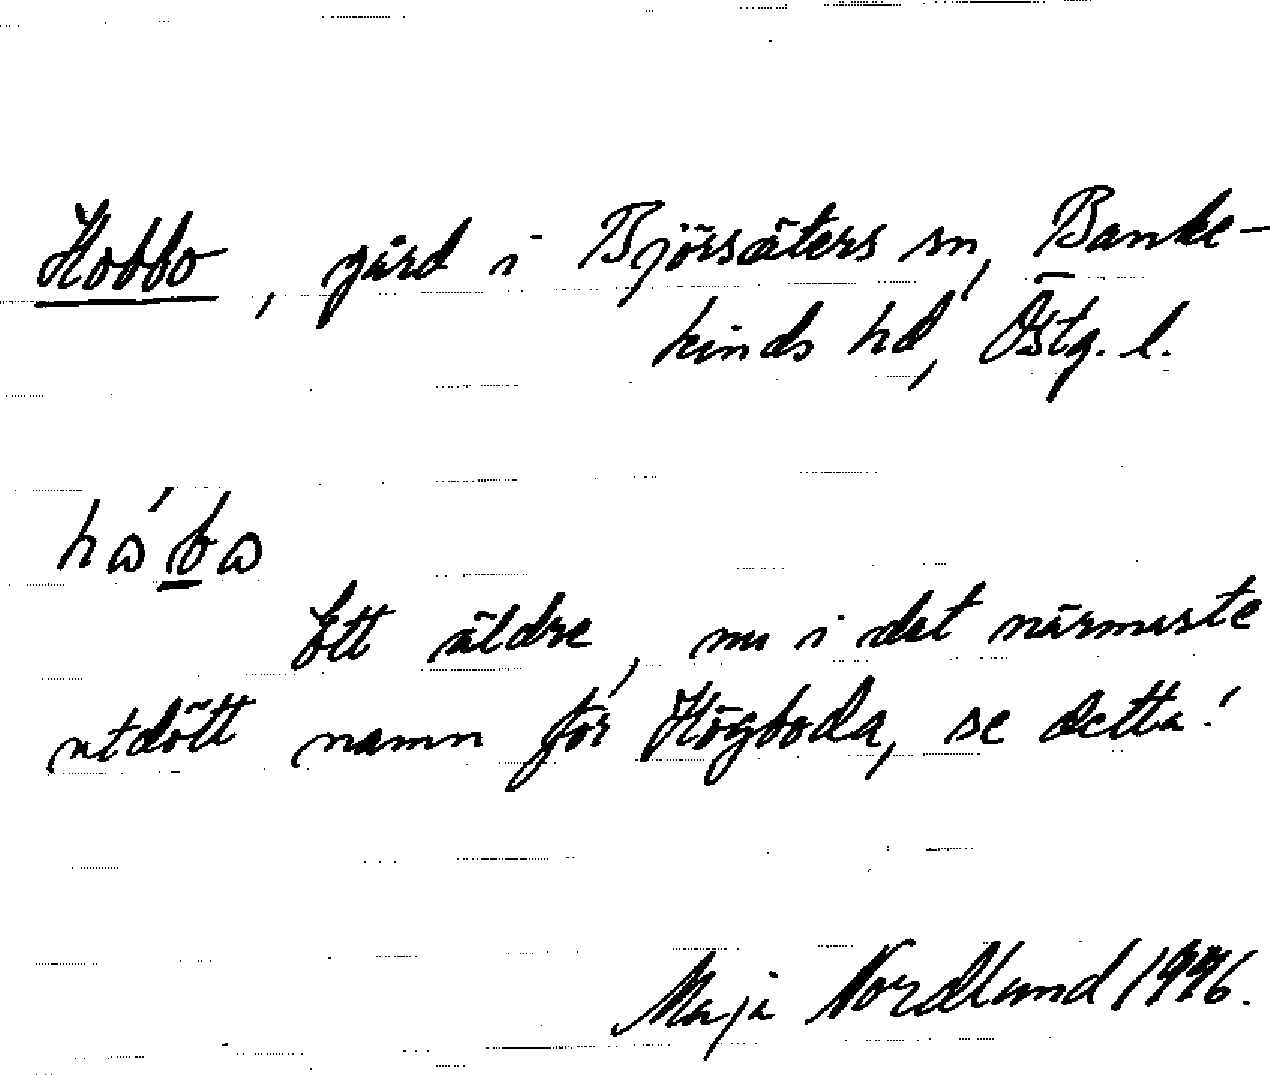 Hobbo, gård i Björsäters sn, Banke-
kinds hd, Östg. l.
Ett äldre, nu i det närmaste
utdött namn för Högboda, se detta!
Maja Nordlund